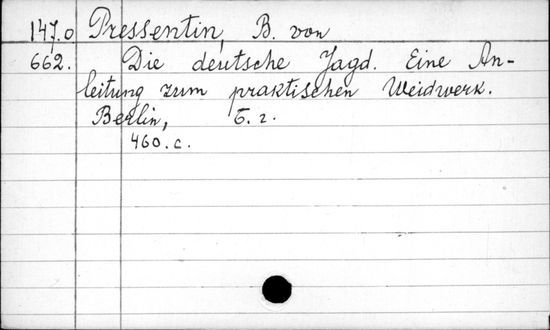 147.0 Pressentin, B. von
662. Die deutsche Jagd. Eine An-
leitung zum praktischen Weidwerk.
Berlin, б. г.
460. с.